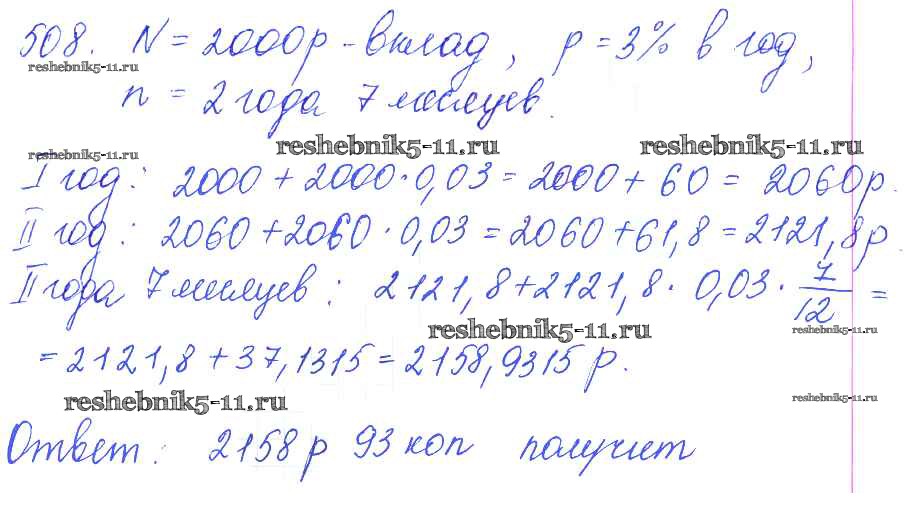 508. N = 2000р - вклад, р = 3% в год,
reshebnik5-11.ru
n = 2 года 7 месяцев.
reshebnik5-11.ru reshebnik5-11.ru reshebnik5-11.ru
I год: 2000 + 2000 · 0,03 = 2000 + 60 = 2060р.
II год: 2060 + 2060 · 0,03 = 2060 + 61,8 = 2121,8р.
II года 7 месяцев: 2121,8 + 2121,8 · 0,03 · 7/12 =
reshebnik5-11.ru reshebnik5-11.ru
= 2121,8 + 37,1315 = 2158,9315 р.
reshebnik5-11.ru reshebnik5-11.ru
Ответ: 2158 р 93 коп получит